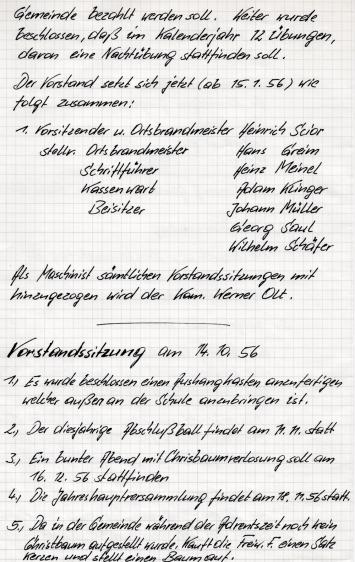 Gemeinde bezahlt werden soll. Weiter wurde
beschlossen, daß im Kalenderjahr 12 Übungen,
davon eine Nachtübung stattfinden soll.
Der Vorstand setzt sich jetzt (ab 15.1.56) wie
folgt zusammen:
1. Vorsitzender u. Ortsbrandmeister Heinrich Scior
stellv. Ortsbrandmeister Hans Greim
Schriftführer Heinz Meinel
Kassenwart Adam Klinger
Beisitzer Johann Müller
Georg Saul
Wilhelm Schäfer
Als Maschinist sämtlichen Vorstandssitzungen mit
hinzugezogen wird der Kam. Werner Olt.
Vorstandssitzung am 14.10.56
1., Es wurde beschlossen einen Aushangkasten anzufertigen
welcher außen an der Schule anzubringen ist.
2., Der diesjährige Abschlußball findet am 11.11. statt
3., Ein bunter Abend mit Chrisbaumverlosung soll am
16.12.56 stattfinden
4., Die Jahreshauptversammlung findet am 18.11.56 statt.
5., Da in der Gemeinde während der Adventszeit noch kein
Christbaum aufgestellt wurde, kauft die Freiw. F. einen Satz
Kerzen und stellt einen Baum auf.